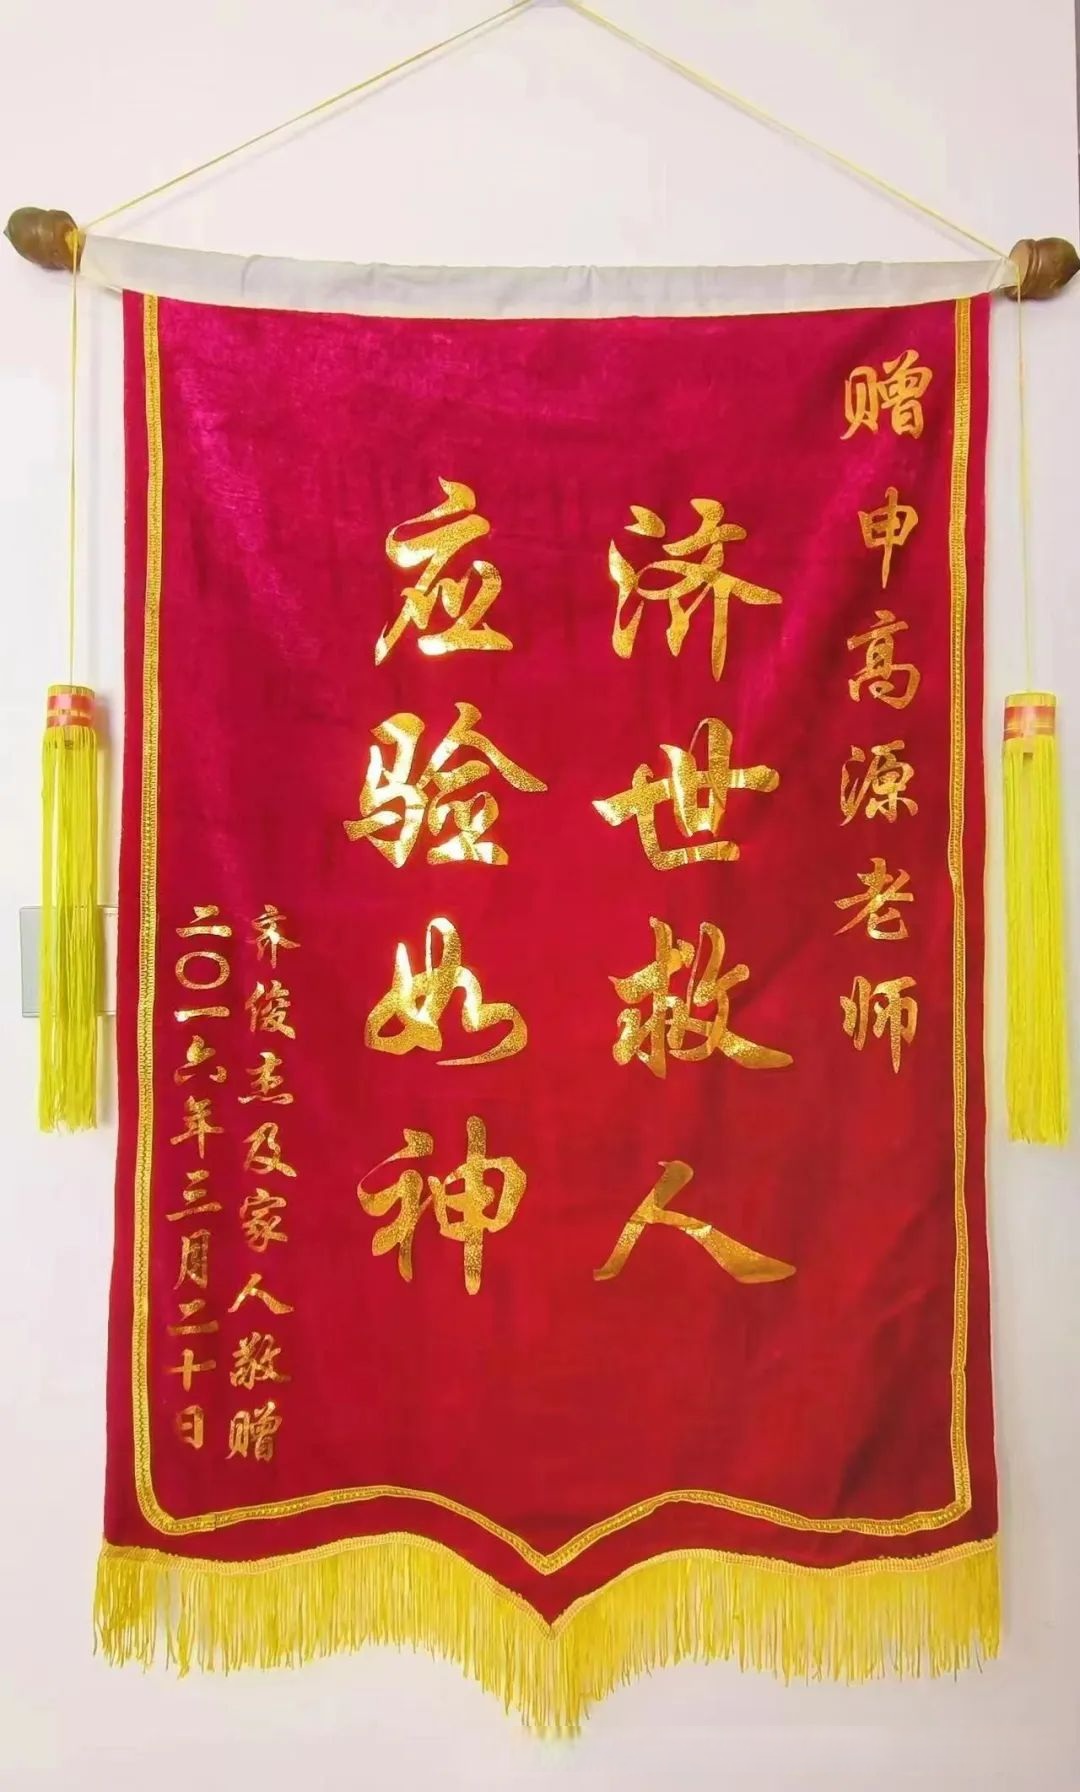 赠申高源老师
济世救人
应验如神
齐俊杰及家人敬赠
二〇一六年三月二十日